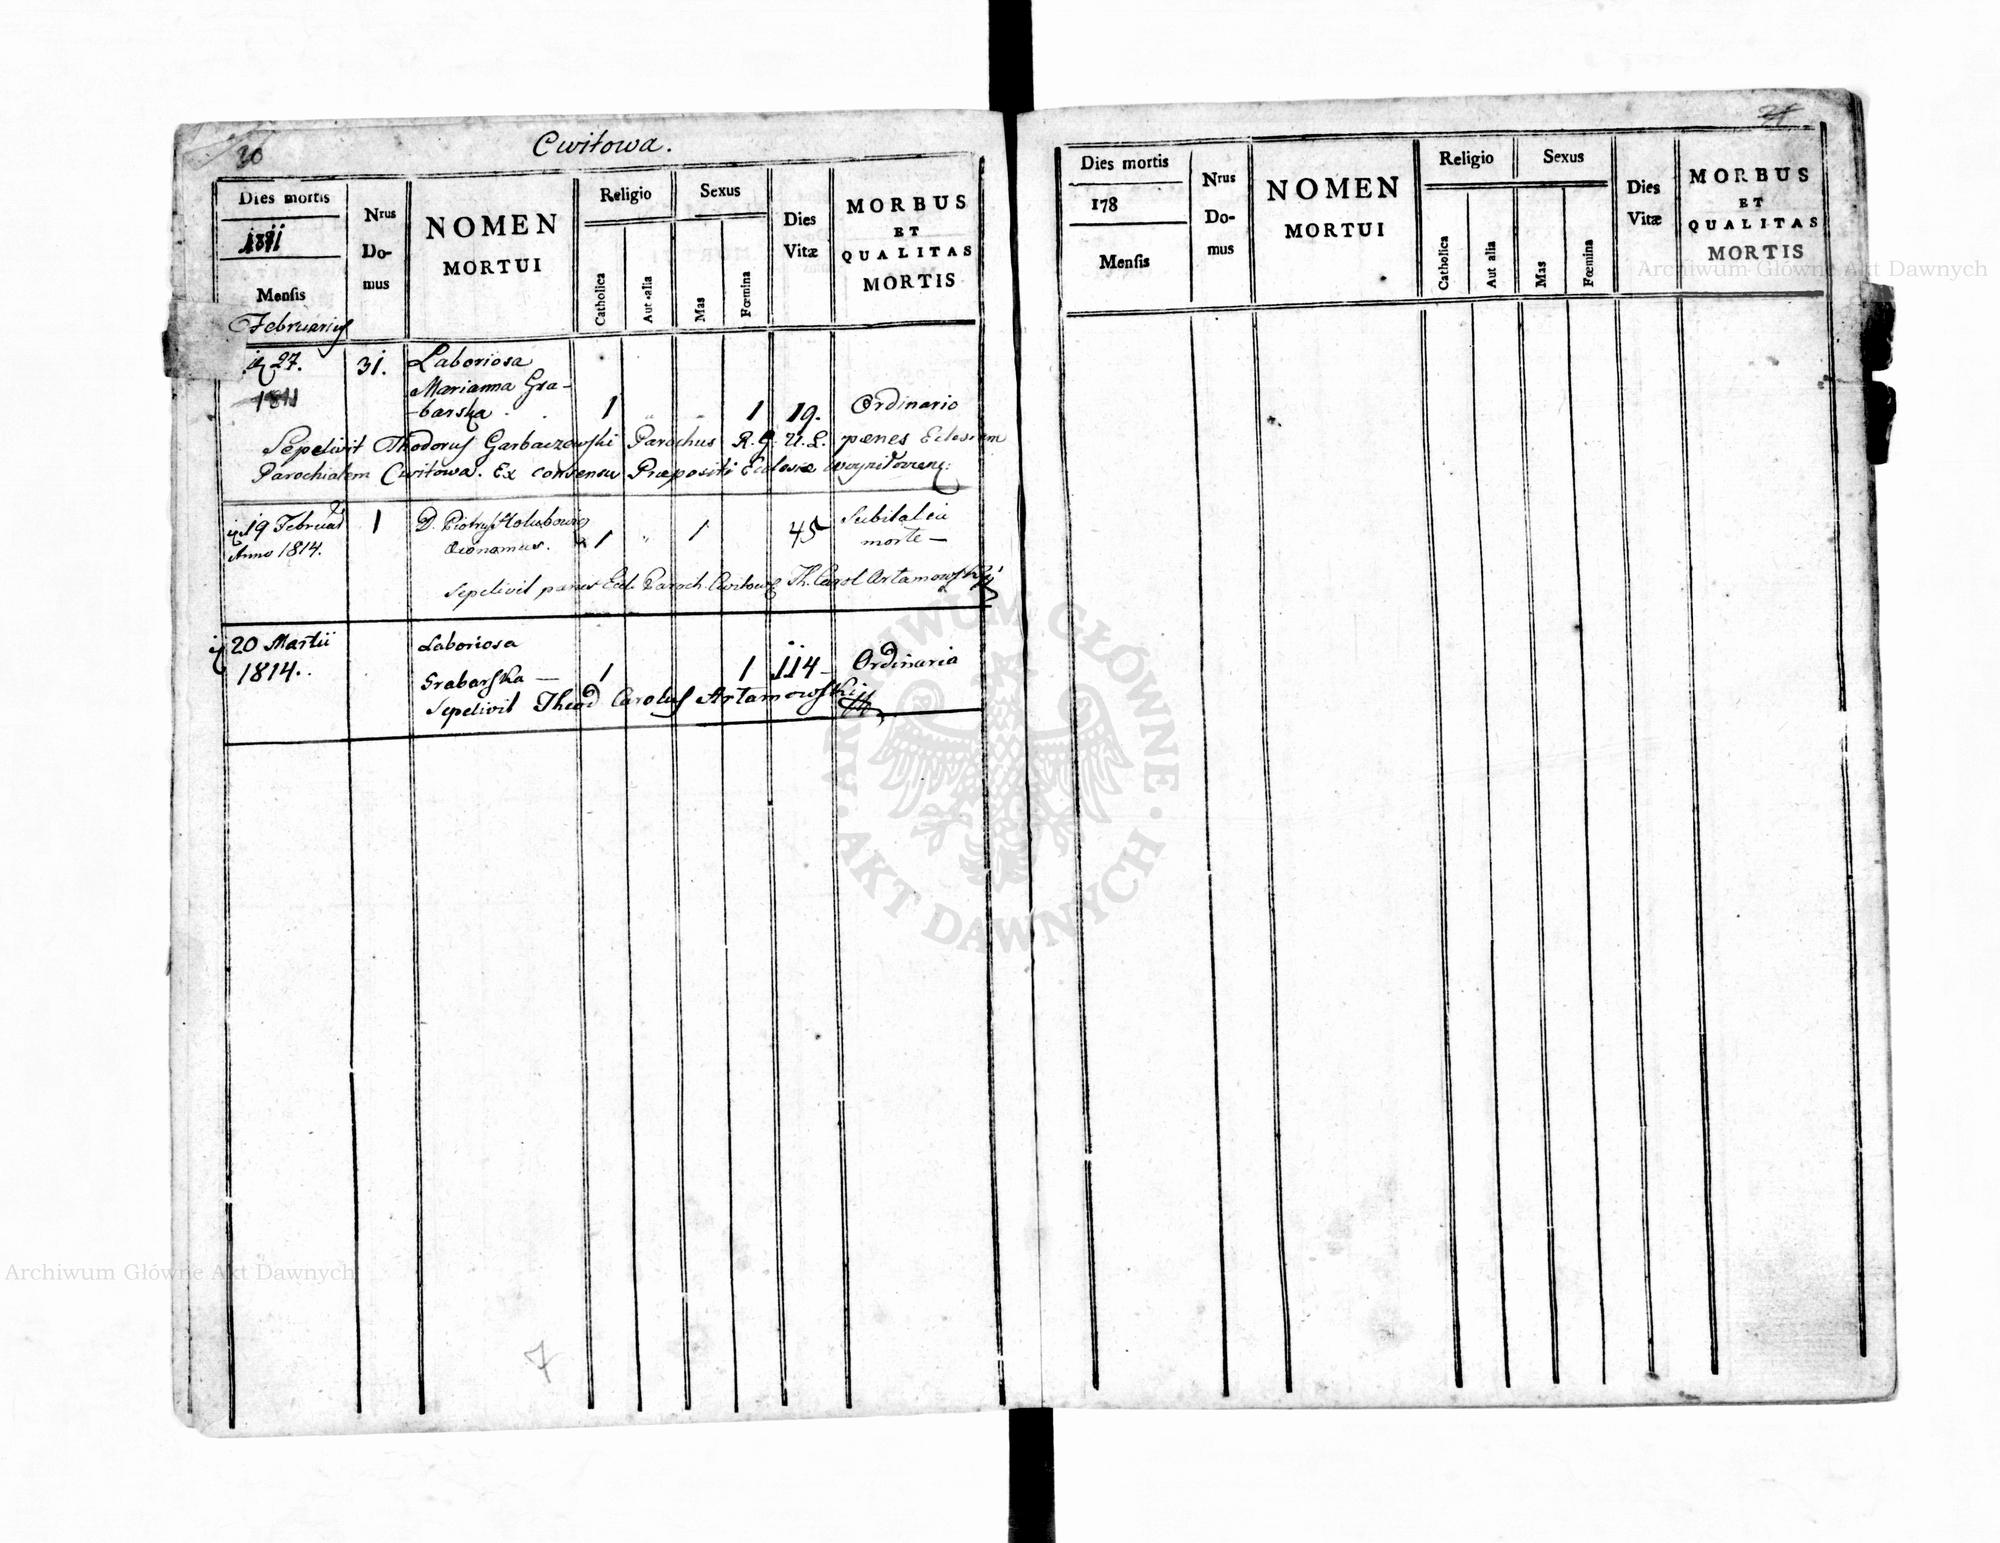 30
Cwitowa.
Dies mortis
1811
Mensis
Februarius
Nrus
Do-
mus
NOMEN
MORTUI
Religio
Catholica
Aut alia
Sexus
Mas
Fœmina
Dies
Vitæ
MORBUS
ET
QUALITAS
MORTIS
27. 31. Laboriosa
1811 Marianna Gra-
-barska 1 " " 1 19. Ordinario
Sepelivit Thodorus Garbaczewski Parochus R. G. U. L. penes Eclesiam
Parochialem Cwitowa. Ex consensu Præpositi Eclesiæ
19 Februar 1 D. Piotrus Holubowicz 1 " 1 45 Subitalea
Anno 1814. Œconomus. morte —
Sepelivit penes Eccl. Paroch. Cwitow Th. Carol Artamowski
20 Martii Laboriosa
1814.. Grabarska — 1 1 114 - Ordinaria
Sepelivit Theod Carolus Artamowski
7
Dies mortis
178
Mensis
Nrus
Do-
mus
NOMEN
MORTUI
Religio
Catholica
Aut alia
Sexus
Mas
Fœmina
Dies
Vitæ
MORBUS
ET
QUALITAS
MORTIS
Archiwum Główne Akt Dawnych
ARCHIWUM GŁÓWNE · AKT DAWNYCH ·
Archiwum Główne Akt Dawnych